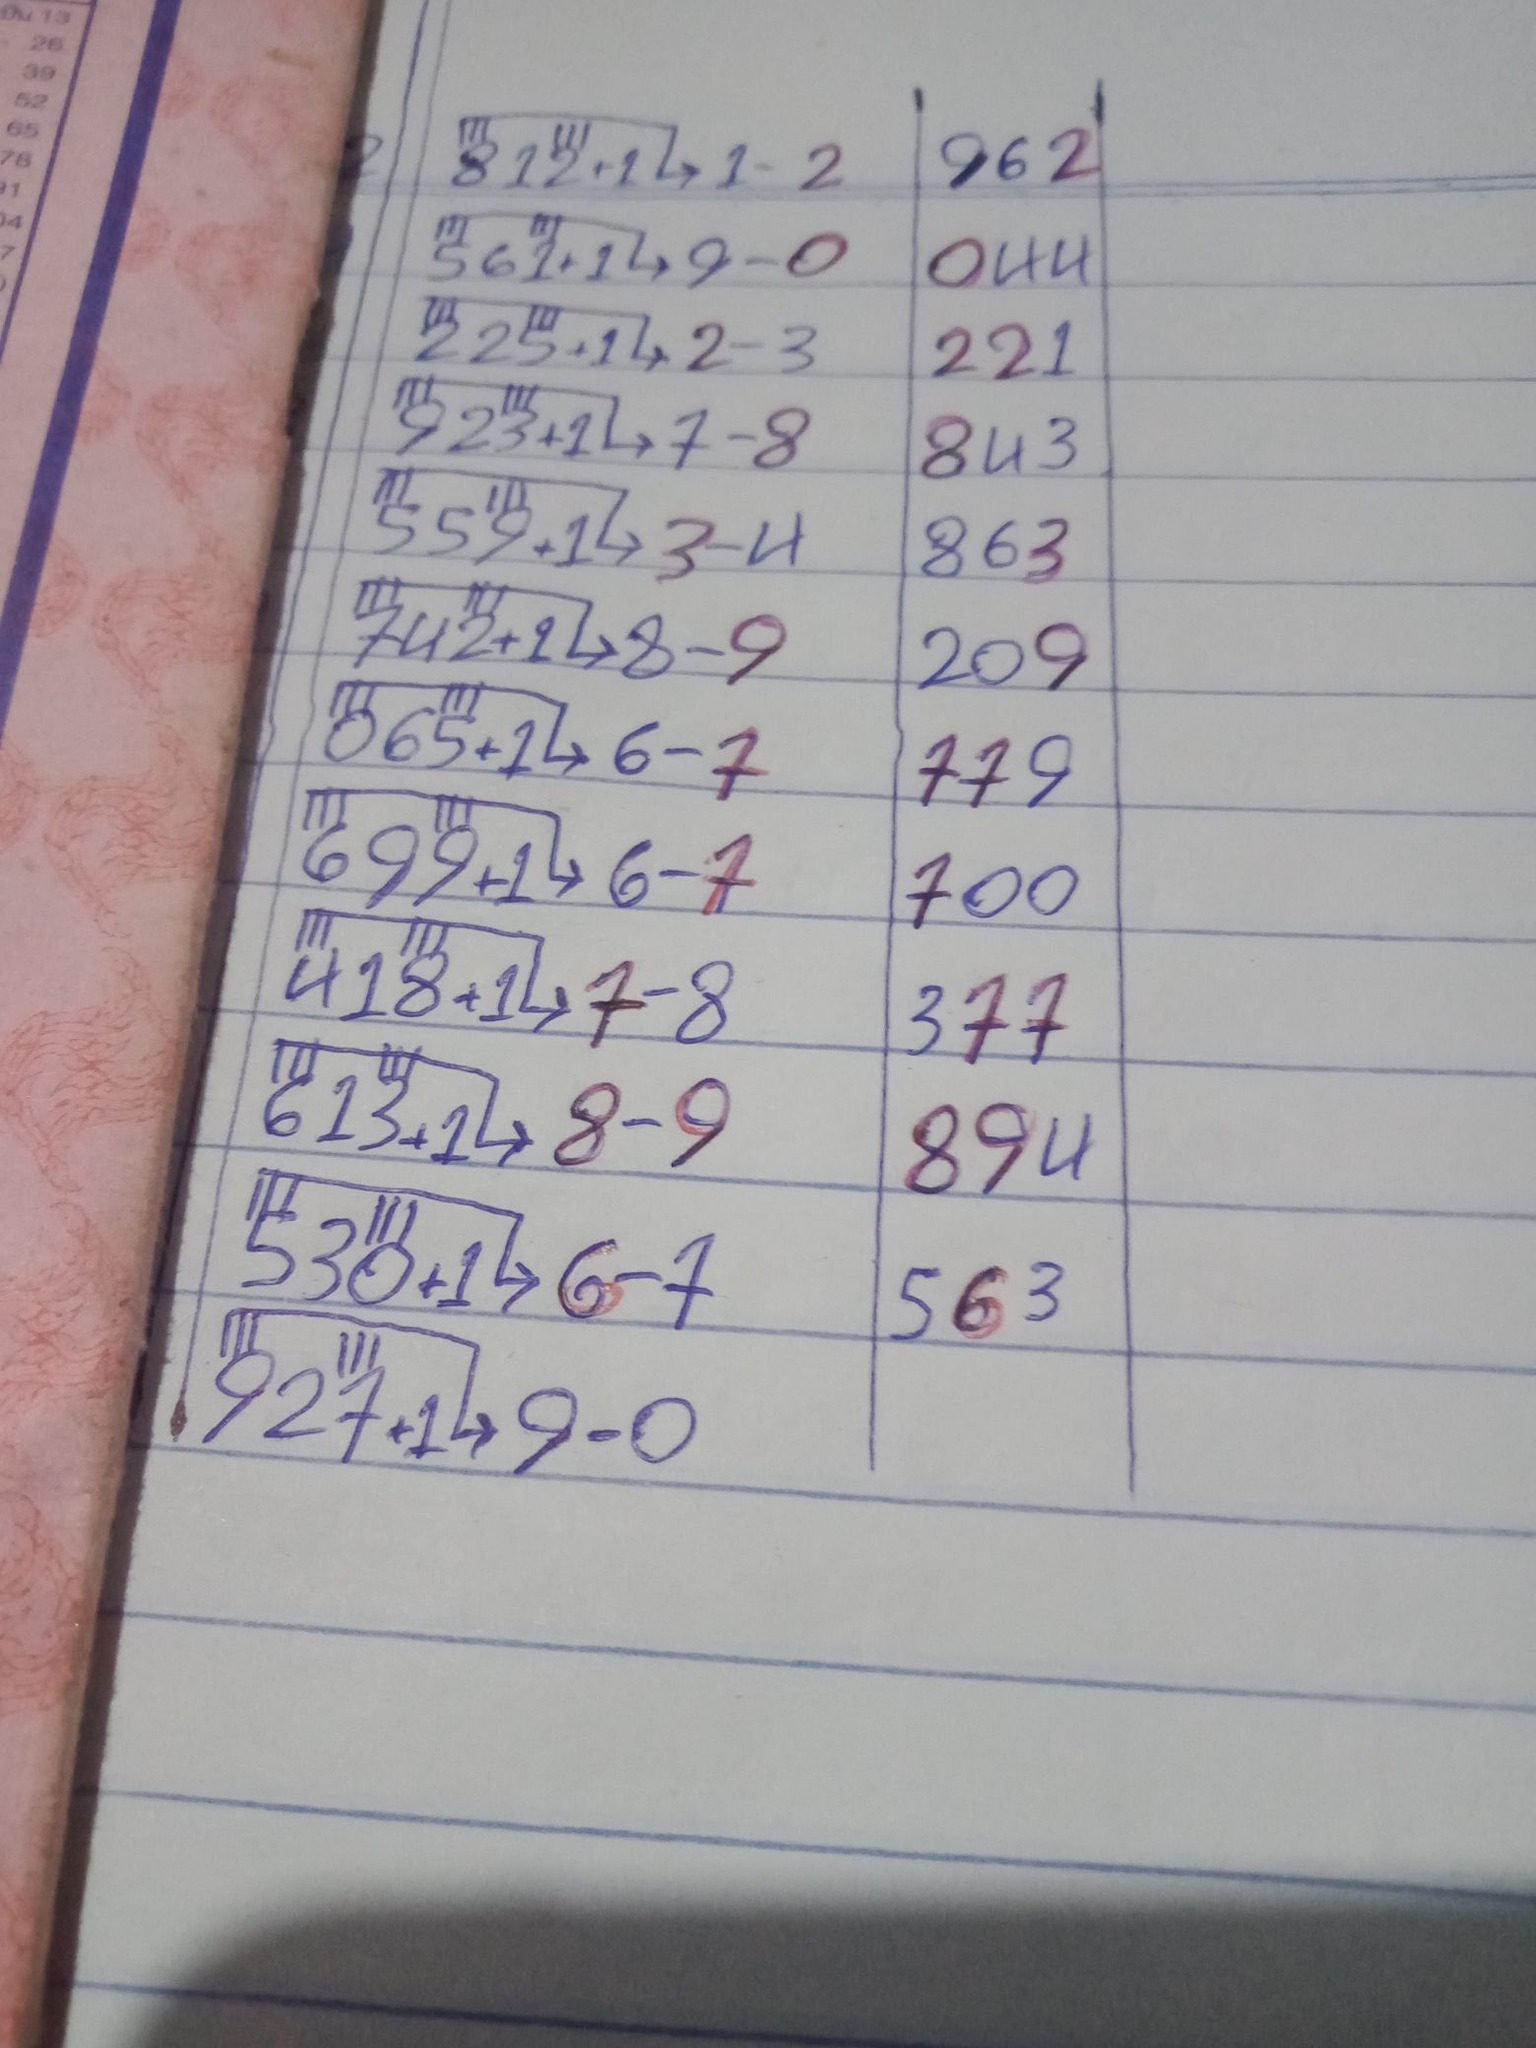 ปีน 13
26
39
52
65
78
91
04
7
0
812+1↳1-2 962
561+1↳9-0 044
225+1↳2-3 221
923+1↳7-8 843
559+1↳3-4 863
742+1↳8-9 209
065+1↳6-7 779
699+1↳6-7 700
418+1↳7-8 377
613+1↳8-9 894
530+1↳6-7 563
927+1↳9-0